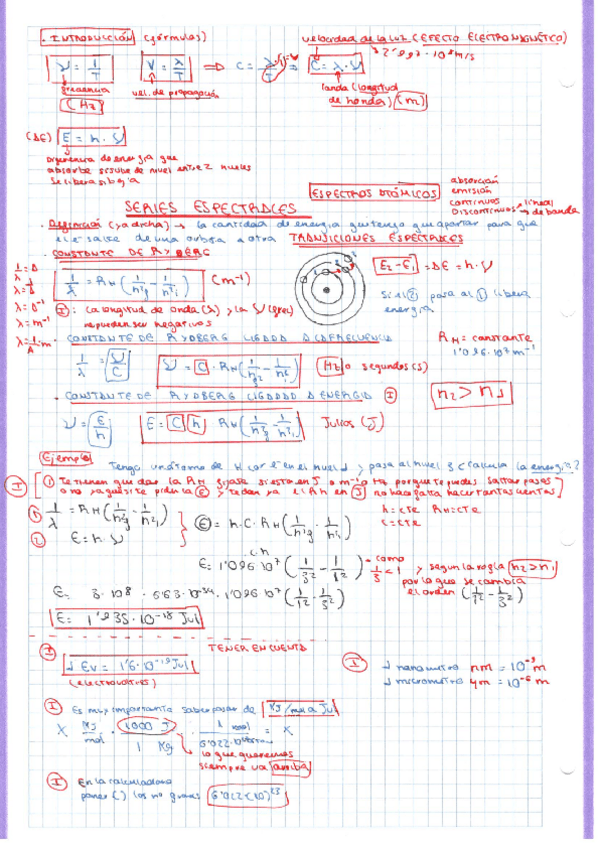 · INTRODUCCIÓN (fórmulas)
velocidad de la luz (EFECTO ELECTROMAGNÉTICO)
2'997 · 10⁸ m/s
ν = 1/T
V = λ/T ⇒ C = λ/T = C = λ · ν
frecuencia
(Hz)
vel. de propagación
landa (longitud
de honda) (m)
(ΔE) E = h · ν
Diferencia de energía que
absorbe si sube de nivel entre 2 niveles
se libera si baja
ESPECTROS ATÓMICOS
absorción
emisión
continuos
Discontinuos → lineal
→ de banda
SERIES ESPECTRALES
· Definición (ya dicha) → la cantidad de energía que tengo que aportar para que
el e⁻ salte de una orbita a otra TRANSICIONES ESPECTRALES
· CONSTANTE DE RYDBERG
1/λ = R_H (1/n²f - 1/n²i) (m⁻¹)
E₂ - E₁ = ΔE = h · ν
Si el ② pasa al ① libera
energía
λ = m⁻¹
I : La longitud de onda (λ) y la ν (frec)
no pueden ser negativos
R_H = constante
1'096 · 10⁷ m⁻¹
· CONSTANTE DE RYDBERG LIGADA A LA FRECUENCIA
1/λ = ν/C
ν = C · R_H (1/n²f - 1/n²i) Hz o segundos (s)
· CONSTANTE DE RYDBERG LIGADA A ENERGÍA I
n₂ > n₁
ν = E/h
E = C h R_H (1/n²f - 1/n²i) Julios (J)
Ejemplo
Tengo un átomo de H con el e⁻ en el nivel 1 y pasa al nivel 3 ¿calcula la energía?
I ① Te tienen que dar la R_H fijarse si está en J o m⁻¹ o Hz porque te puedes saltar pasos
o no ya que si te piden la E y te dan ya el RH en J no hace falta hacer tantas cuentas
1. 1/λ = R_H (1/n²f - 1/n²i)
2. E = h · ν
E = h · C · R_H (1/n²f - 1/n²i)
h = cte R_H = cte
c = cte
E = 1'096 · 10⁷ (1/3² - 1/1²)
→ como 1/3 < 1 y según la regla n₂ > n₁
por lo que se cambia
el orden (1/1² - 1/3²)
E = 3 · 10⁸ · 6'63 · 10⁻³⁴ · 1'096 · 10⁷ (1/1² - 1/3²)
E = 1'935 · 10⁻¹⁸ Jul
TENER EN CUENTA
I 1 Ev = 1'6 · 10⁻¹⁹ Jul
(electrovoltios)
I 1 nanometro nm = 10⁻⁹ m
1 micrometro μm = 10⁻⁶ m
I Es muy importante saber pasar de KJ/mol a Jul
X KJ/mol · 1000 J / 1 KJ · 1 mol / 6'022 · 10²³ = X
lo que queremos
siempre va arriba
I En la calculadora
poner ( ) los no graves (6'022 × 10)²³